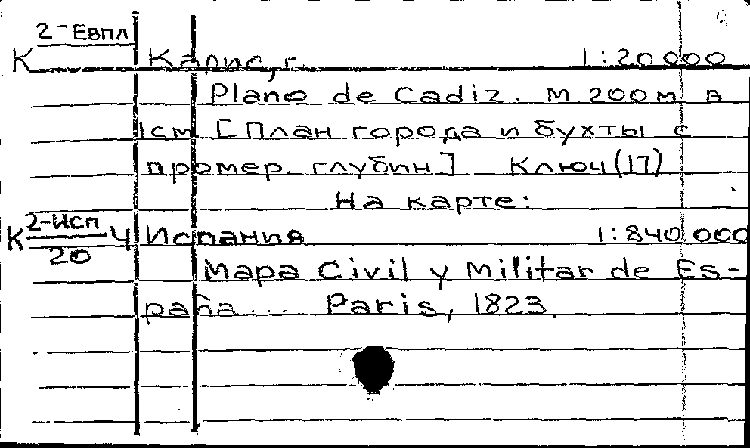 2-Евпл
К Кадис, г. 1:20 000
Plano de Cadiz. М 200 м в
1 см [План города и бухты с
промер. глубин] Ключ (17)
На карте:
К 2-Исп/20 4 Испания 1:840 000
Mapa Civil y Militar de Es-
paña ... Paris, 1823.